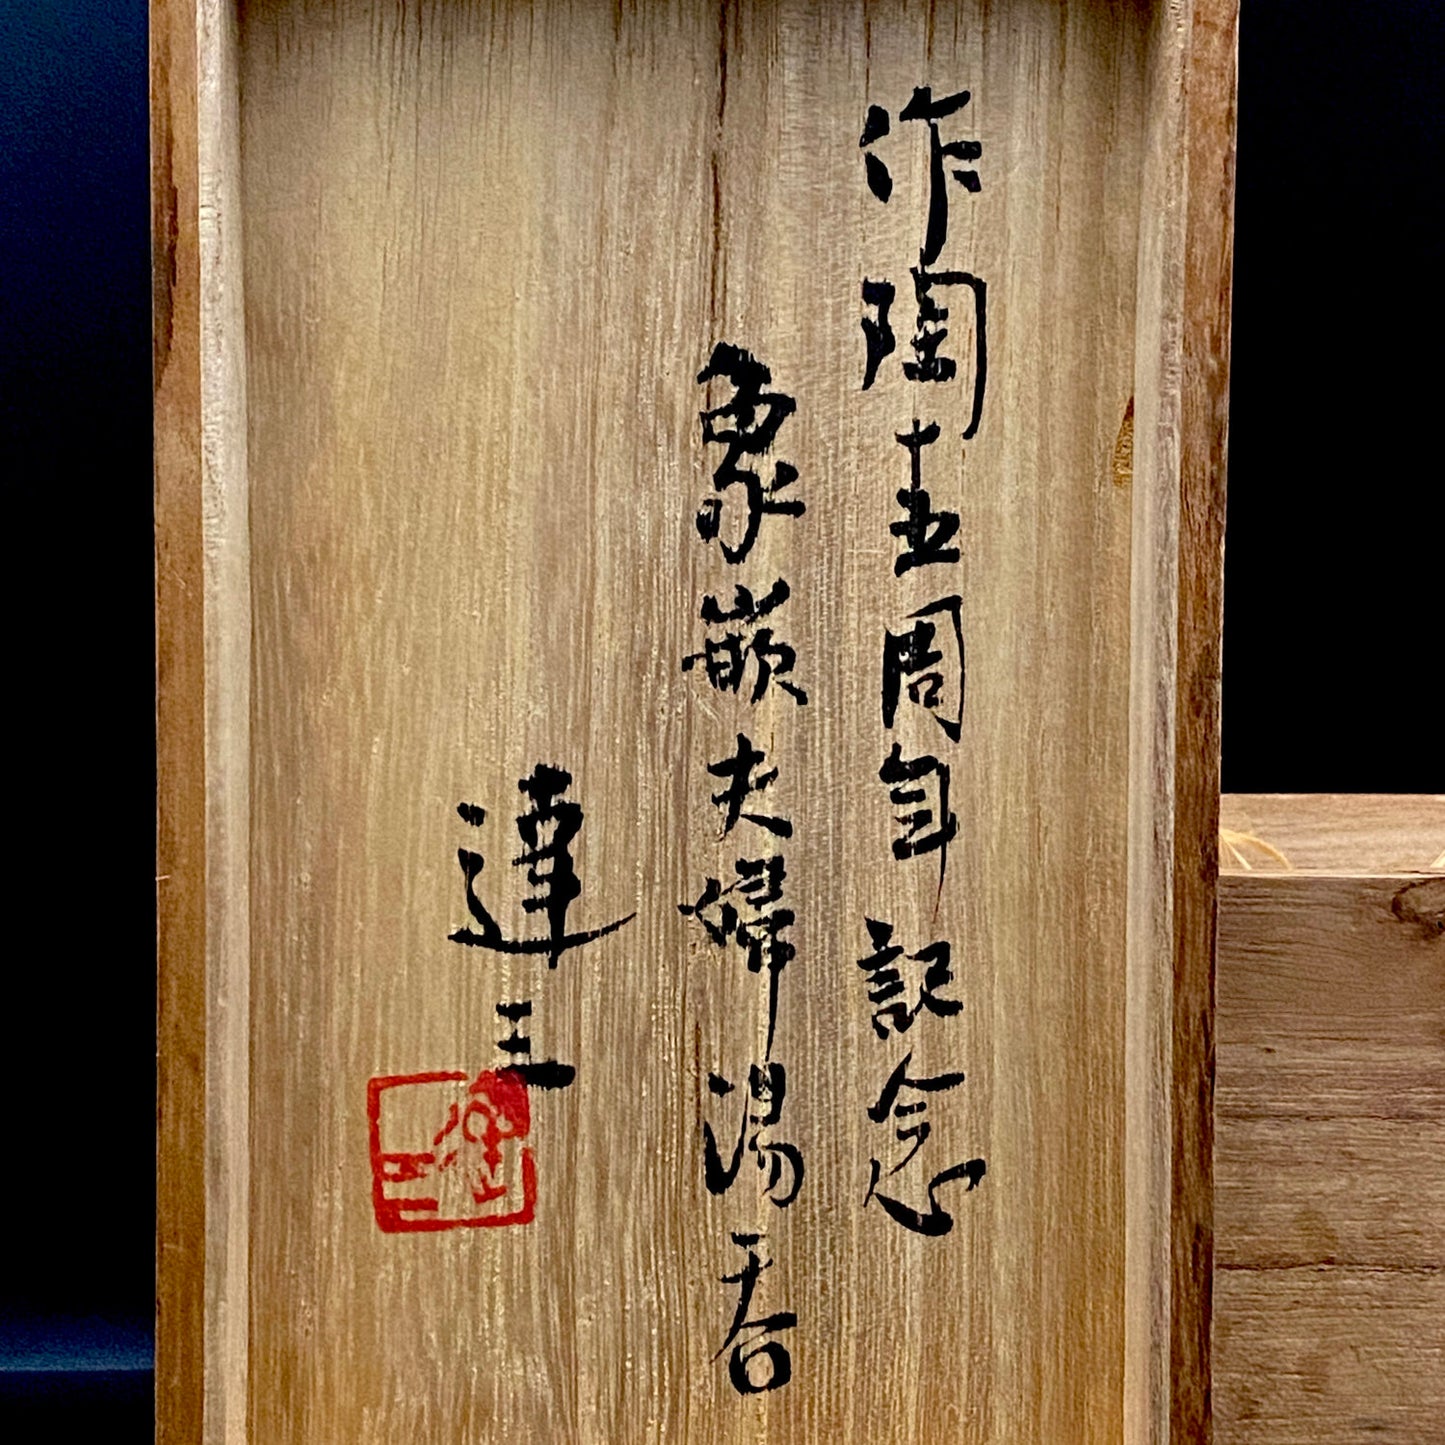 作陶十五周年記念
象嵌夫婦湯呑
達三